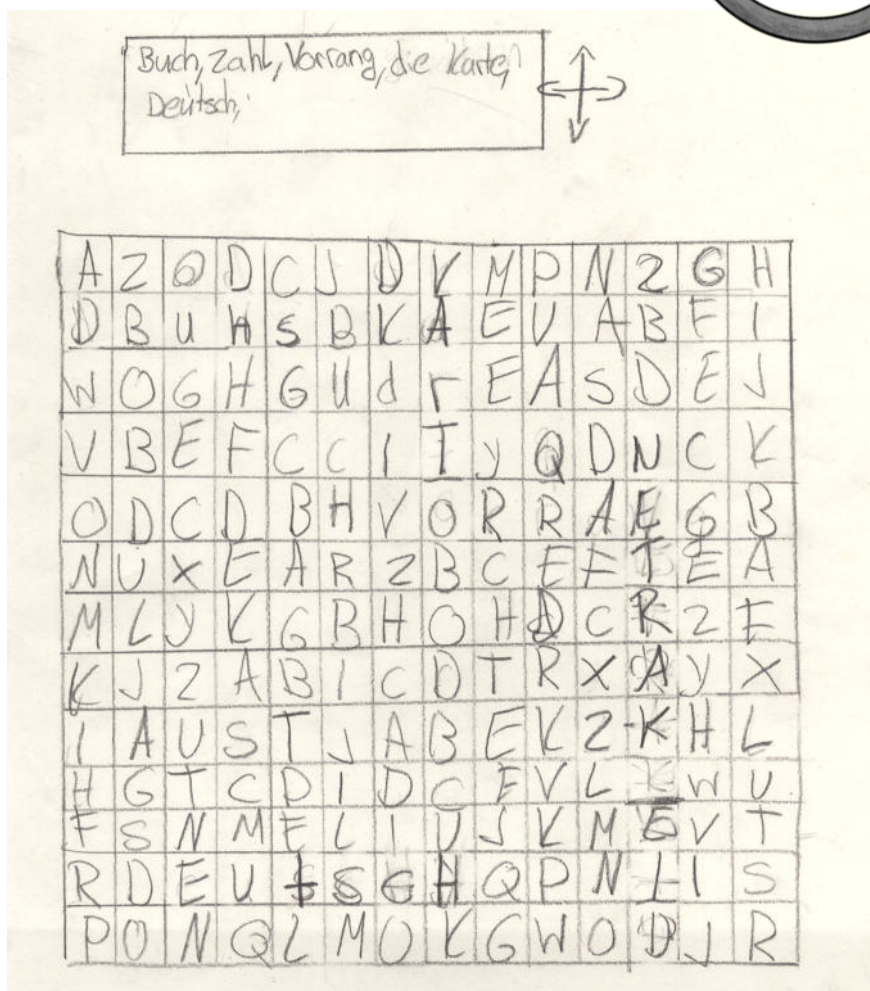 Buch, Zahl, Vorrang, die Karten
Deutsch,
A Z O D C J D V M P N Z G H
D B U H S B K A E U A B F I
W O G H G U d r E A S D E J
V B E F C C I T y Q D N C K
O D C D B H V O R R A E G B
N U X E A R Z B C E F T E A
M L y K G B H O H D C R Z F
K J Z A B I C D T R X A y X
I A U S T J A B E K Z K H L
H G T C D I D C E V L W U
F S N M E L I U J K M E V T
R D E U t S C H Q P N I I S
P O N Q L M O K G W O D J R